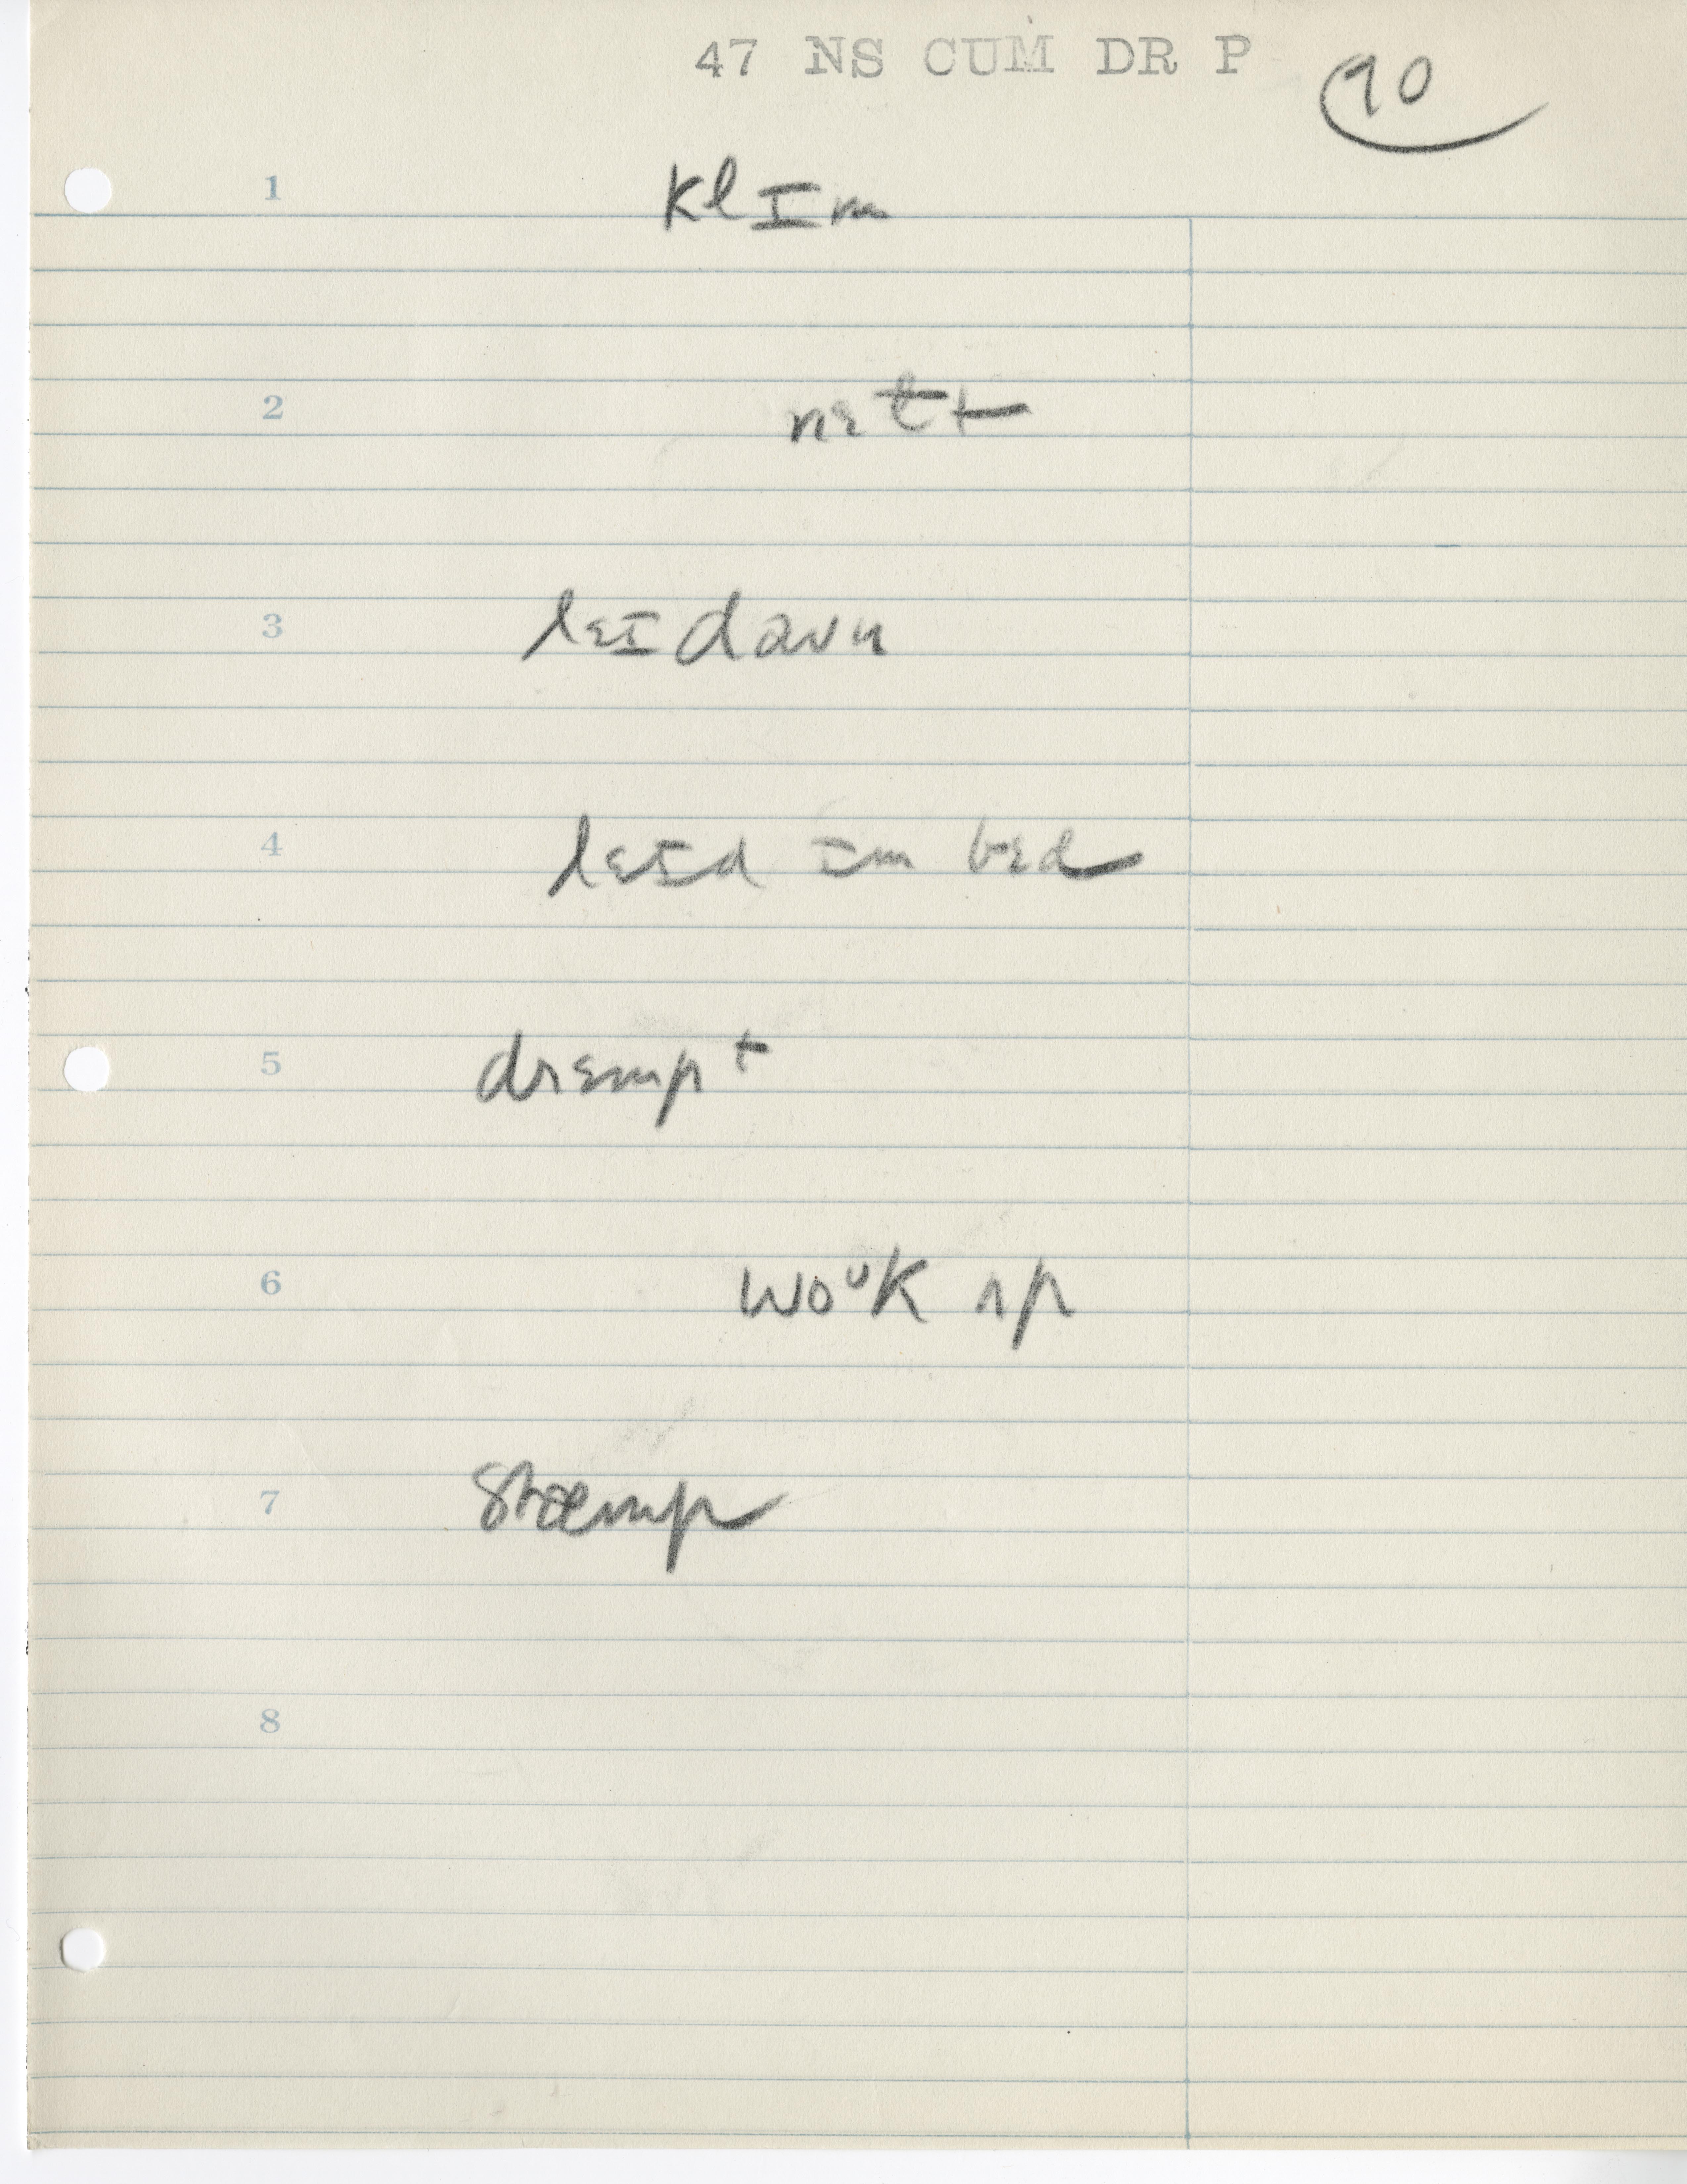 47 NS CUM DR P
90
1 klɪm
2
3 lɛɪ daun
4 lɛɪd ɪm bɛd
5 drɛmpt
6 woᵘk ʌp
7 stæmp
8